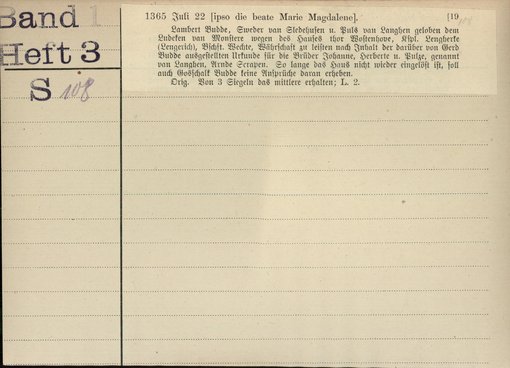 Band 1
Heft 3
S 108
1365 Juli 22 [ipso die beate Marie Magdalene]. [19
Lambert Budde, Sweder van Sledehusen u. Puls van Langhen geloben dem
Ludeken van Monstere wegen des Hauses thor Wostenhove, Kspl. Lengherke
(Lengerich), Bschft. Wechte, Währschaft zu leisten nach Inhalt der darüber von Gerd
Budde ausgestellten Urkunde für die Brüder Johanne, Herberte u. Pulze, genannt
van Langhen, Arnde Scrapen. So lange das Haus nicht wieder eingelöst ist, soll
auch Godschalk Budde keine Ansprüche daran erheben.
Orig. Von 3 Siegeln das mittlere erhalten; L. 2.